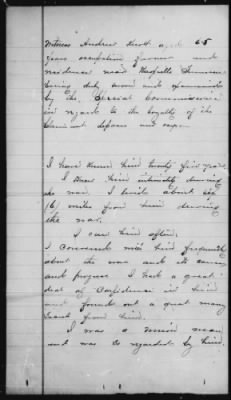 Witness Andrew Knott aged 65
years occupation farmer and
residence near Tennessee
being duly sworn and examined
by the Special Commissioner
in regard to the loyalty of the
Claimant deposes and says
I have known him twenty five years
I knew him intimately during
the war. I lived about six
(6) miles from him during
the war.
I saw him often.
I conversed with him frequently
about the war and its causes
and progress. I had a great
deal of Confidence in him
and found out a great many
from him.
I was a Union man
and was so regarded by him.